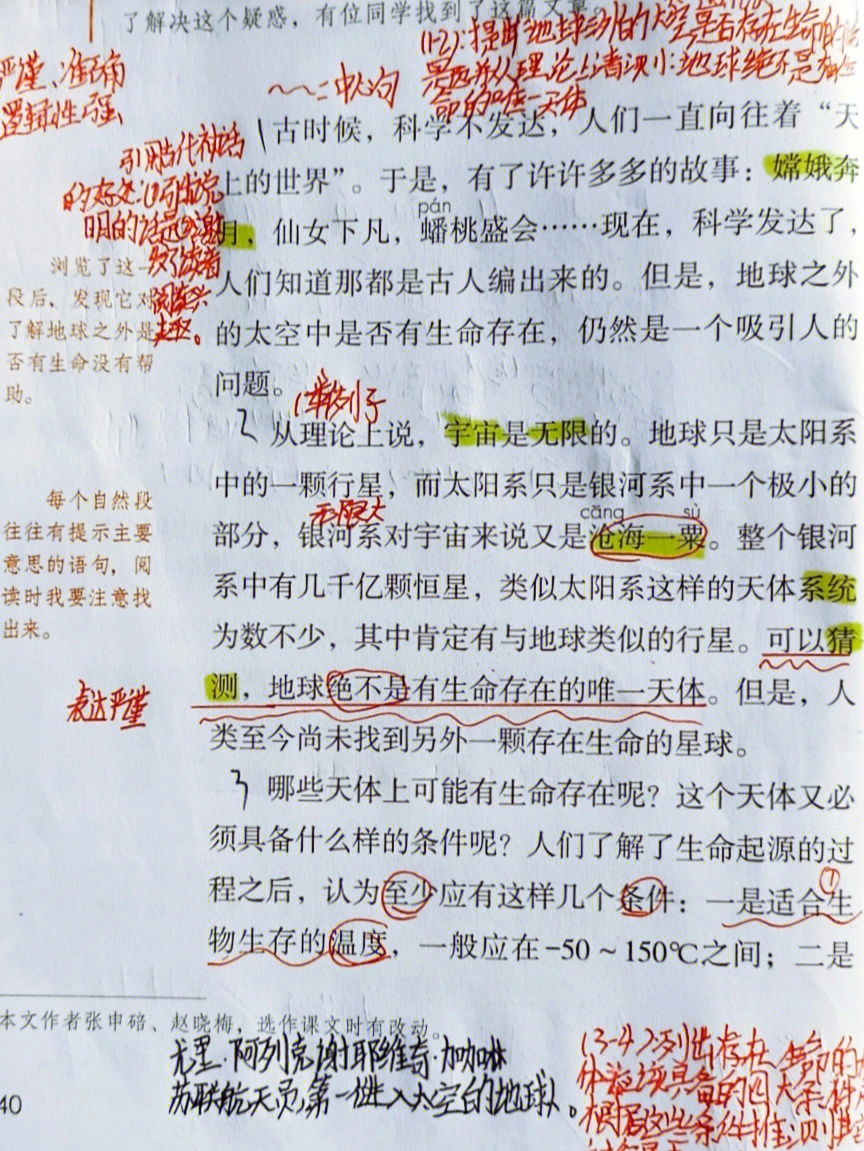 了解决这个疑惑，有位同学找到了这篇文章。
严谨、准确
逻辑性强
～～：中心句
(1-2)：提出地球之外的太空是否存在生命的
命的唯一天体
1 古时候，科学不发达，人们一直向往着“天
引用古代神话
上的世界”。于是，有了许许多多的故事：嫦娥奔
的好处：(1)引出说
pán
明的话题(2)激
月，仙女下凡，蟠桃盛会……现在，科学发达了，
发了读者
浏览了这一
段后，发现它对
了解地球之外是
否有生命没有帮
助。
阅读兴
趣。
人们知道那都是古人编出来的。但是，地球之外
的太空中是否有生命存在，仍然是一个吸引人的
问题。
(举例子
2 从理论上说，宇宙是无限的。地球只是太阳系
中的一颗行星，而太阳系只是银河系中一个极小的
无限大
cāng sù
部分，银河系对宇宙来说又是沧海一粟。整个银河
每个自然段
往往有提示主要
意思的语句，阅
读时我要注意找
出来。
系中有几千亿颗恒星，类似太阳系这样的天体系统
为数不少，其中肯定有与地球类似的行星。可以猜
测，地球绝不是有生命存在的唯一天体。但是，人
表达严谨
类至今尚未找到另外一颗存在生命的星球。
3 哪些天体上可能有生命存在呢？这个天体又必
须具备什么样的条件呢？人们了解了生命起源的过
程之后，认为至少应有这样几个条件：一是适合生
①
物生存的温度，一般应在-50～150℃之间；二是
本文作者张申碚、赵晓梅，选作课文时有改动。
尤里·阿列克谢耶维奇·加加林
苏联航天员，第一个进入太空的地球人。
40
(3-4)列出存在生命的
体必须具备的四大条件
根据这些条件推测其